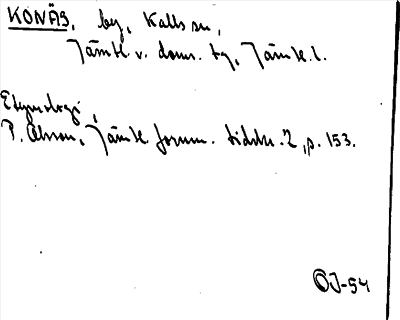 KONÄS, by, Kalls sn,
Jämtl. v. doms. tg, Jämtl. l.
Etymologi,
P. Olsson, Jämtl. fornm. tidskr. 2, p. 153.
OJ-54